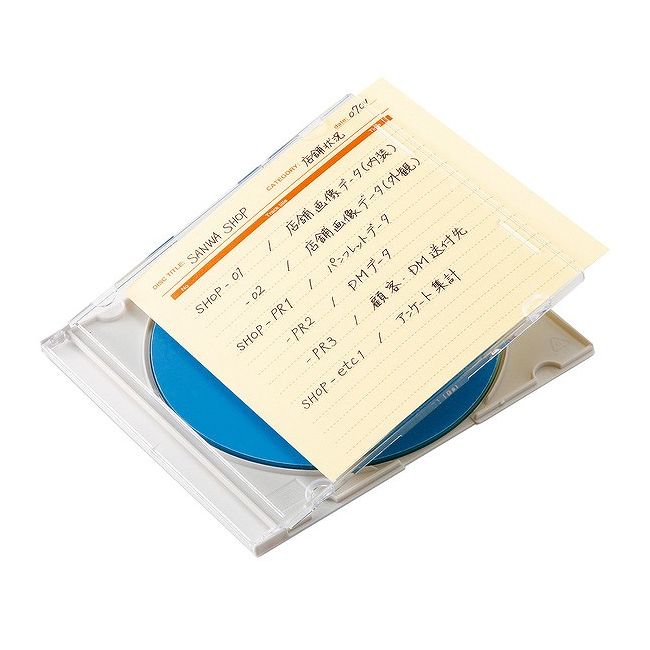 date: 0701
DISC TITLE: SANWA SHOP CATEGORY: 店舗状況
No. Track title Time
SHOP-01 / 店舗画像データ(内装)
-02 / 店舗画像データ(外観)
SHOP-PR1 / パンフレットデータ
-PR2 / DMデータ
-PR3 / 顧客・DM送付先
SHOP-etc1 / アンケート集計